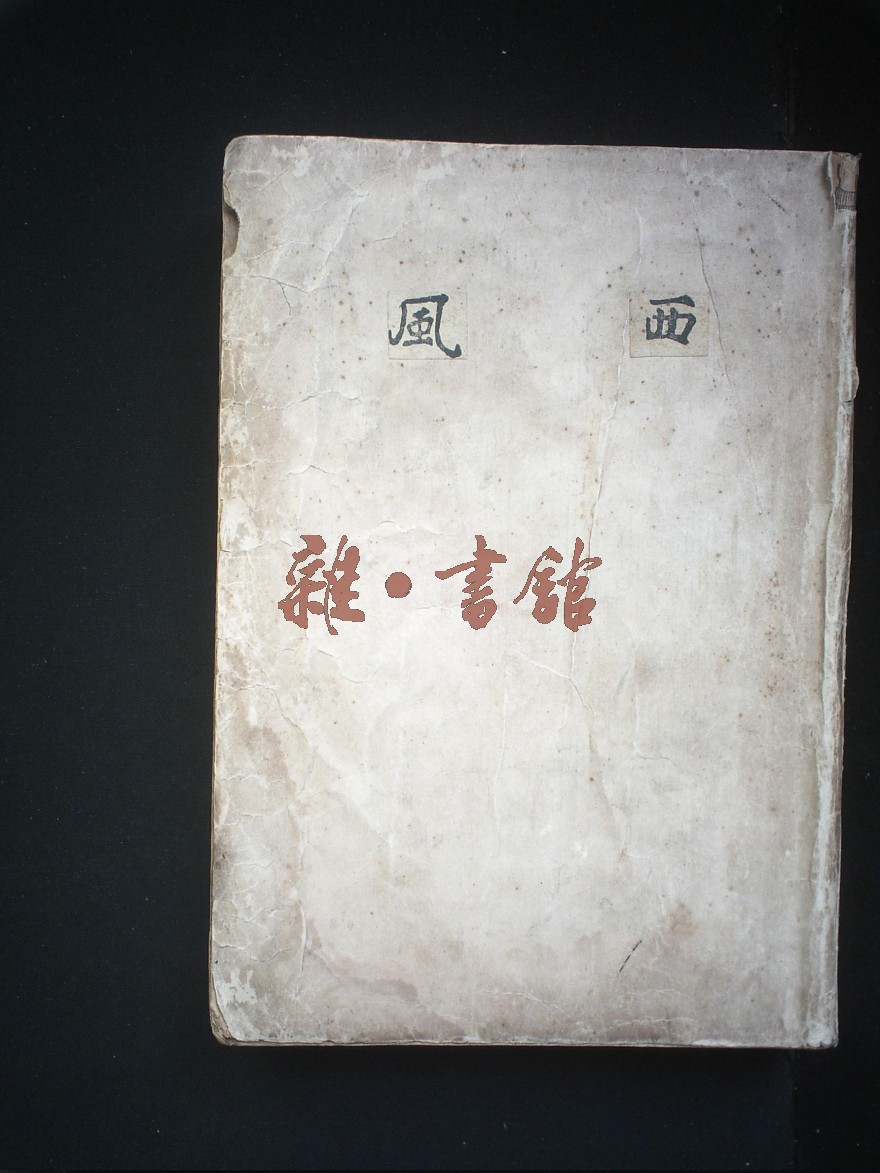 西風
雜·書館